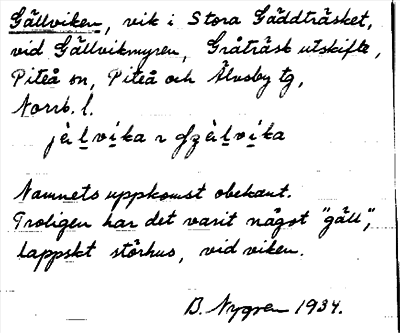 Gällviken, vik i Stora Gäddträsket,
vid Gällvikmyren, Gråträsk utskifte,
Piteå sn, Piteå och Älvsby tg,
Norrb. l.
Namnets uppkomst obekant.
Troligen har det varit något "gäll",
lappskt störhus, vid viken.
B. Nygren 1934.